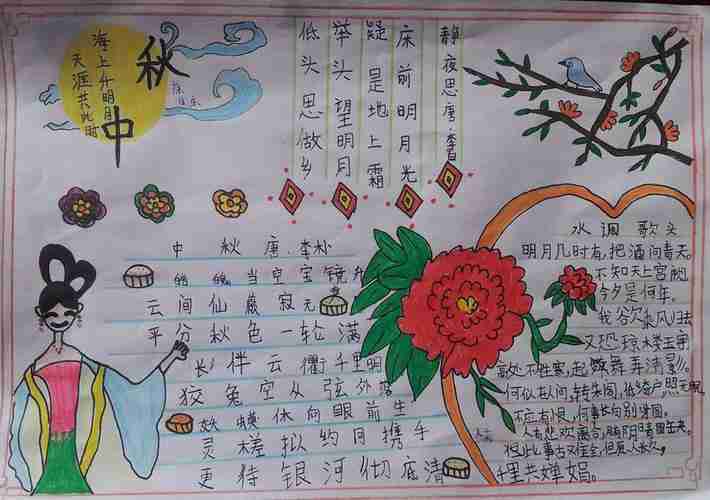 海上升明月
天涯共此时
中秋
静夜思唐.李白
床前明月光
疑是地上霜
举头望明月
低头思做乡
中秋唐.李朴
皓魄当空宝镜升
云间仙籁寂无
平分秋色一轮满
长伴云衢千里明
狡兔空从弦外落
妖蟆休向眼前生
灵槎拟约同携手
更待银河彻底清
水调歌头
明月几时有,把酒问青天。
不知天上宫阙
今夕是何年。
我欲乘风归去
又恐琼楼玉宇
高处不胜寒,起舞弄清影。
何似在人间,转朱阁,低绮户,照无眠
不应有恨,何事长向别时圆。
人有悲欢离合,月有阴晴圆缺
此事古难全,但愿人长久,
千里共婵娟。